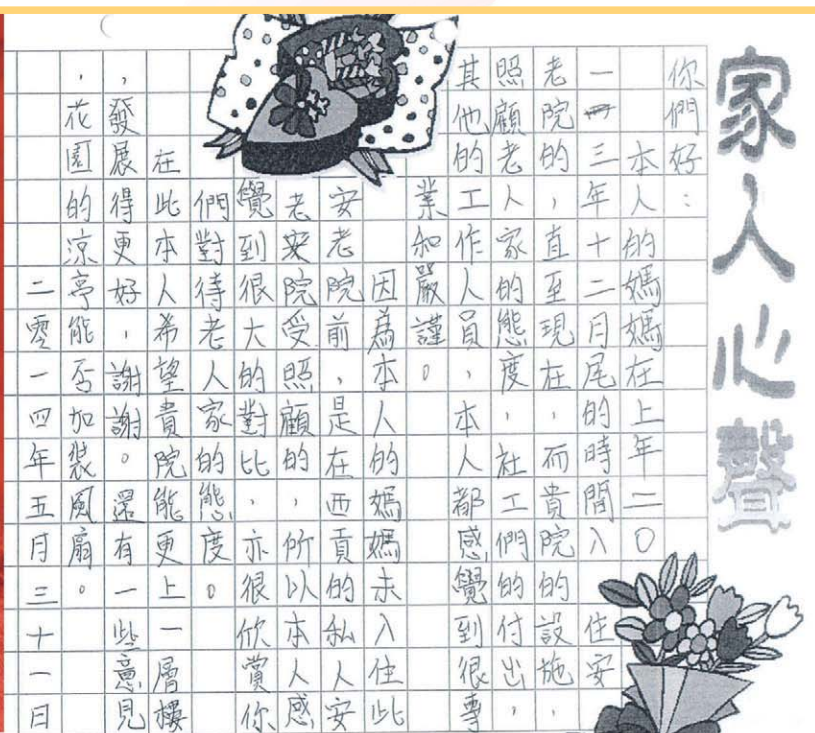 家人心聲
你們好：
本人的媽媽在上年二〇
一三年十二月尾的時間入住安
老院的，直至現在，而貴院的設施，
照顧老人家的態度，社工們的付出，
其他的工作人員，本人都感覺到很專
業和嚴謹。
因為本人的媽媽未入住此
安老院前，是在西貢的私人安
老院受照顧的，所以本人感
覺到很大的對比，亦很欣賞你
們對待老人家的態度。
在此本人希望貴院能更上一層樓
，發展得更好，謝謝。還有一些意見
，花園的涼亭能否加裝風扇。
二零一四年五月三十一日